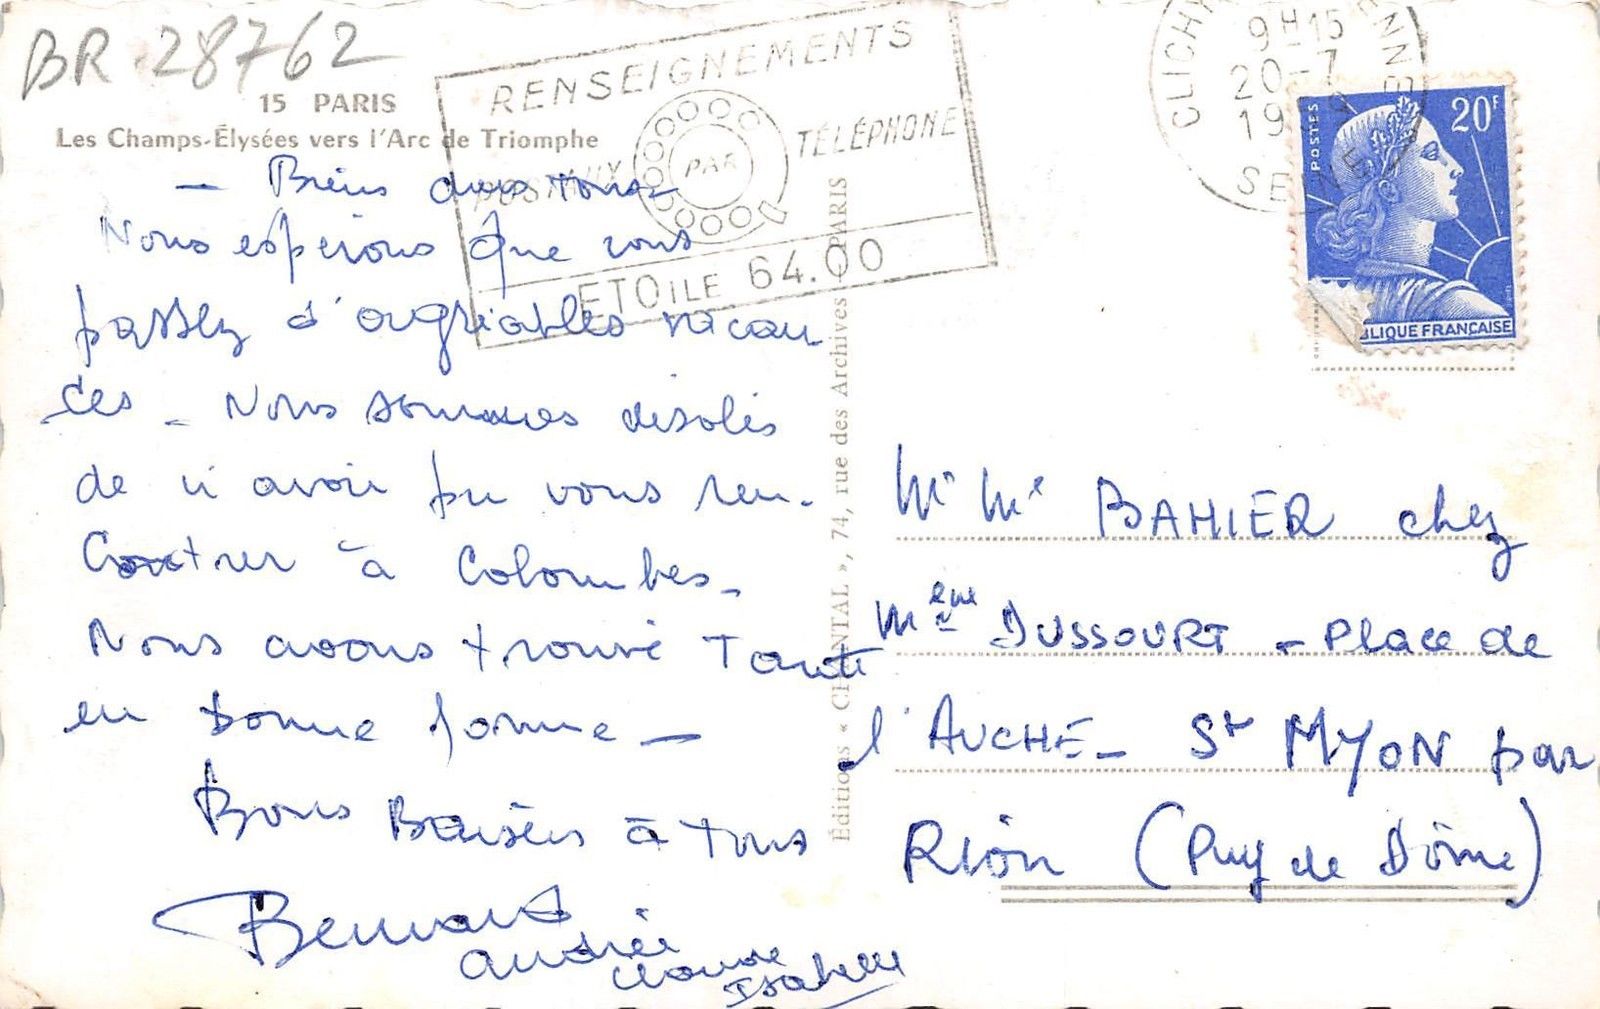 BR 28762
15 PARIS
Les Champs-Élysées vers l'Arc de Triomphe
RENSEIGNEMENTS
POSTAUX PAR TÉLÉPHONE
ETOiLE 64.00
CLICHY
9H15
20-7
19
SEINE
POSTES
20F
BLIQUE FRANÇAISE
- Biens chers tous -
Nous espérons que vous
passez d'agréables vacan
ces - Nous sommes désolés
de n'avoir pu vous ren-
contrer à Colombes -
Nous avons trouvé Tante
en bonne forme -
Bons Baisers à tous
Bernard
Andrée
Claude
Isabelle
Éditions « CHANTAL », 74, rue des Archives - PARIS
Mr Me BAHIER chez
Mme DUSSOURT - Place de
l'AUCHE - St MYON par
Riom (Puy de Dôme)